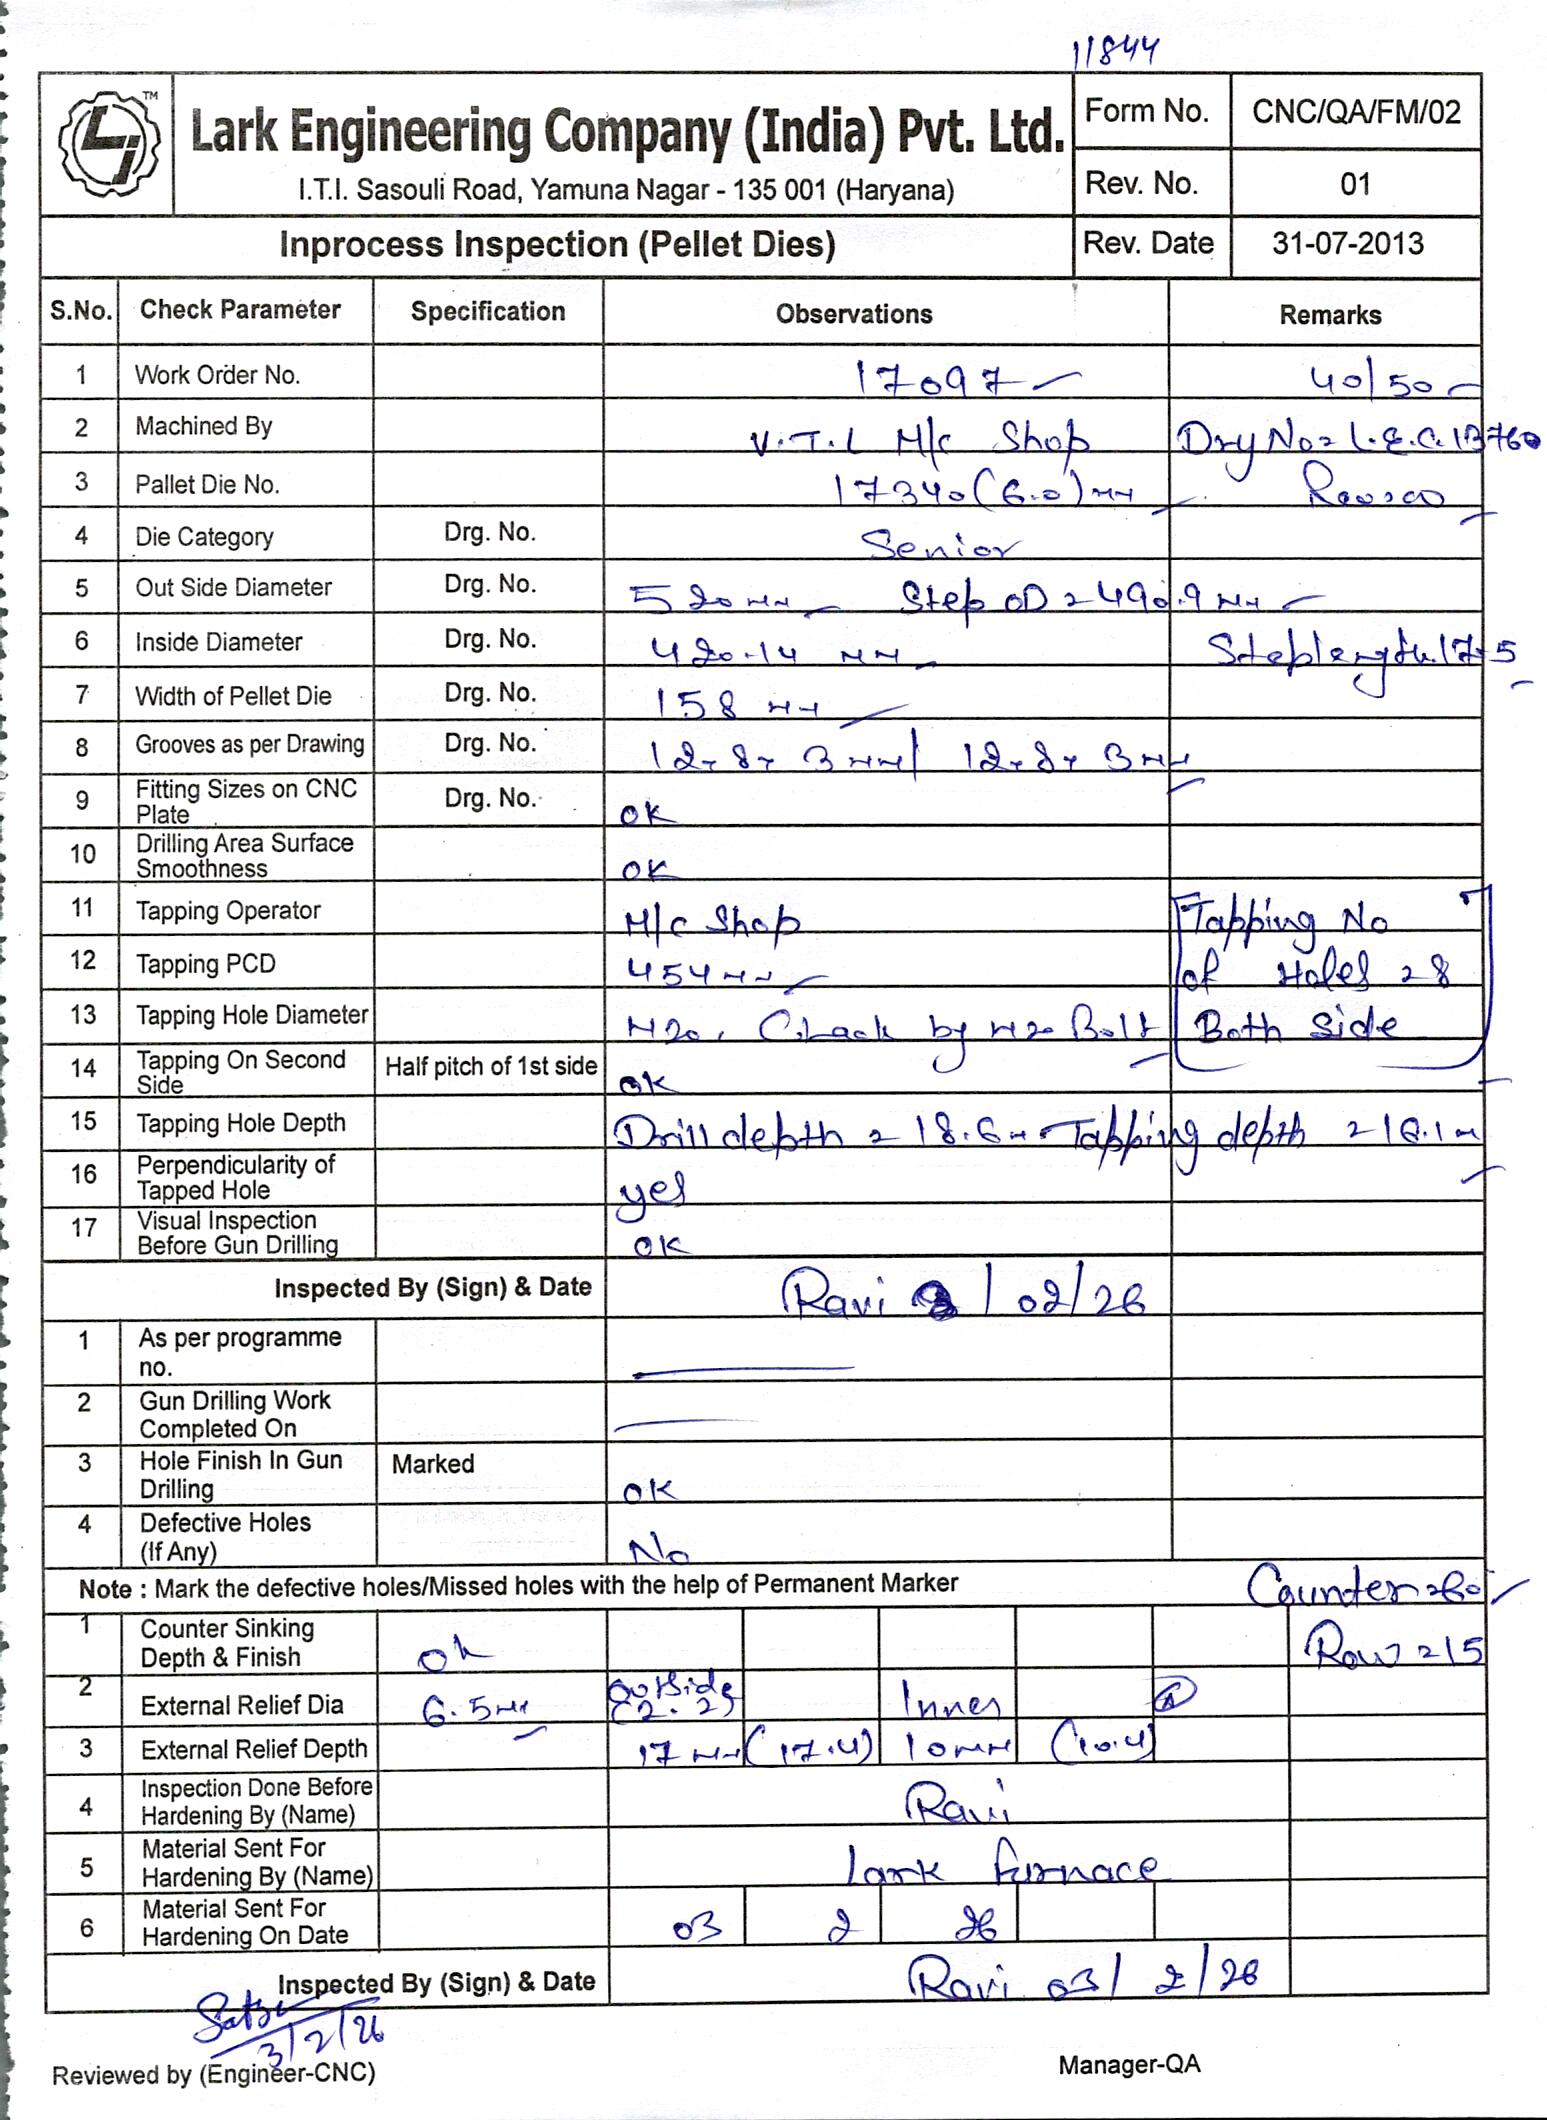 11844
TM
Lark Engineering Company (India) Pvt. Ltd.
I.T.I. Sasouli Road, Yamuna Nagar - 135 001 (Haryana)
Form No. CNC/QA/FM/02
Rev. No. 01
Inprocess Inspection (Pellet Dies) Rev. Date 31-07-2013
S.No. Check Parameter Specification Observations Remarks
1 Work Order No. 17097 40/50
2 Machined By V.T.L M/c Shop Drg No = L.E.C. 13760
3 Pallet Die No. 17340 (6.0) mm
4 Die Category Drg. No. Senior
5 Out Side Diameter Drg. No. 520 mm Step OD = 490.9 mm
6 Inside Diameter Drg. No. 420.14 mm Step length 17.5
7 Width of Pellet Die Drg. No. 158 mm
8 Grooves as per Drawing Drg. No. 12 x 8 x 3 mm / 12 x 8 x 3 mm
9 Fitting Sizes on CNC Plate Drg. No. OK
10 Drilling Area Surface Smoothness OK
11 Tapping Operator M/c Shop Tapping No
12 Tapping PCD 454 mm of Holes = 8
13 Tapping Hole Diameter M20, by M20 Bolt Both Side
14 Tapping On Second Side Half pitch of 1st side OK
15 Tapping Hole Depth Drill depth = 18.6 m Tapping depth = 16.1 m
16 Perpendicularity of Tapped Hole yes
17 Visual Inspection Before Gun Drilling OK
Inspected By (Sign) & Date Ravi / 02/26
1 As per programme no.
2 Gun Drilling Work Completed On
3 Hole Finish In Gun Drilling Marked OK
4 Defective Holes (If Any) No
Note : Mark the defective holes/Missed holes with the help of Permanent Marker Counter = 60
1 Counter Sinking Depth & Finish Ok Row = 15
2 External Relief Dia 6.5 mm Outside (2.2) Inner
3 External Relief Depth 17 mm (17.4) 10 mm (10.4)
4 Inspection Done Before Hardening By (Name) Ravi
5 Material Sent For Hardening By (Name) Lark furnace
6 Material Sent For Hardening On Date 03 2 26
Inspected By (Sign) & Date Ravi 03/2/26
3/2/26
Reviewed by (Engineer-CNC) Manager-QA